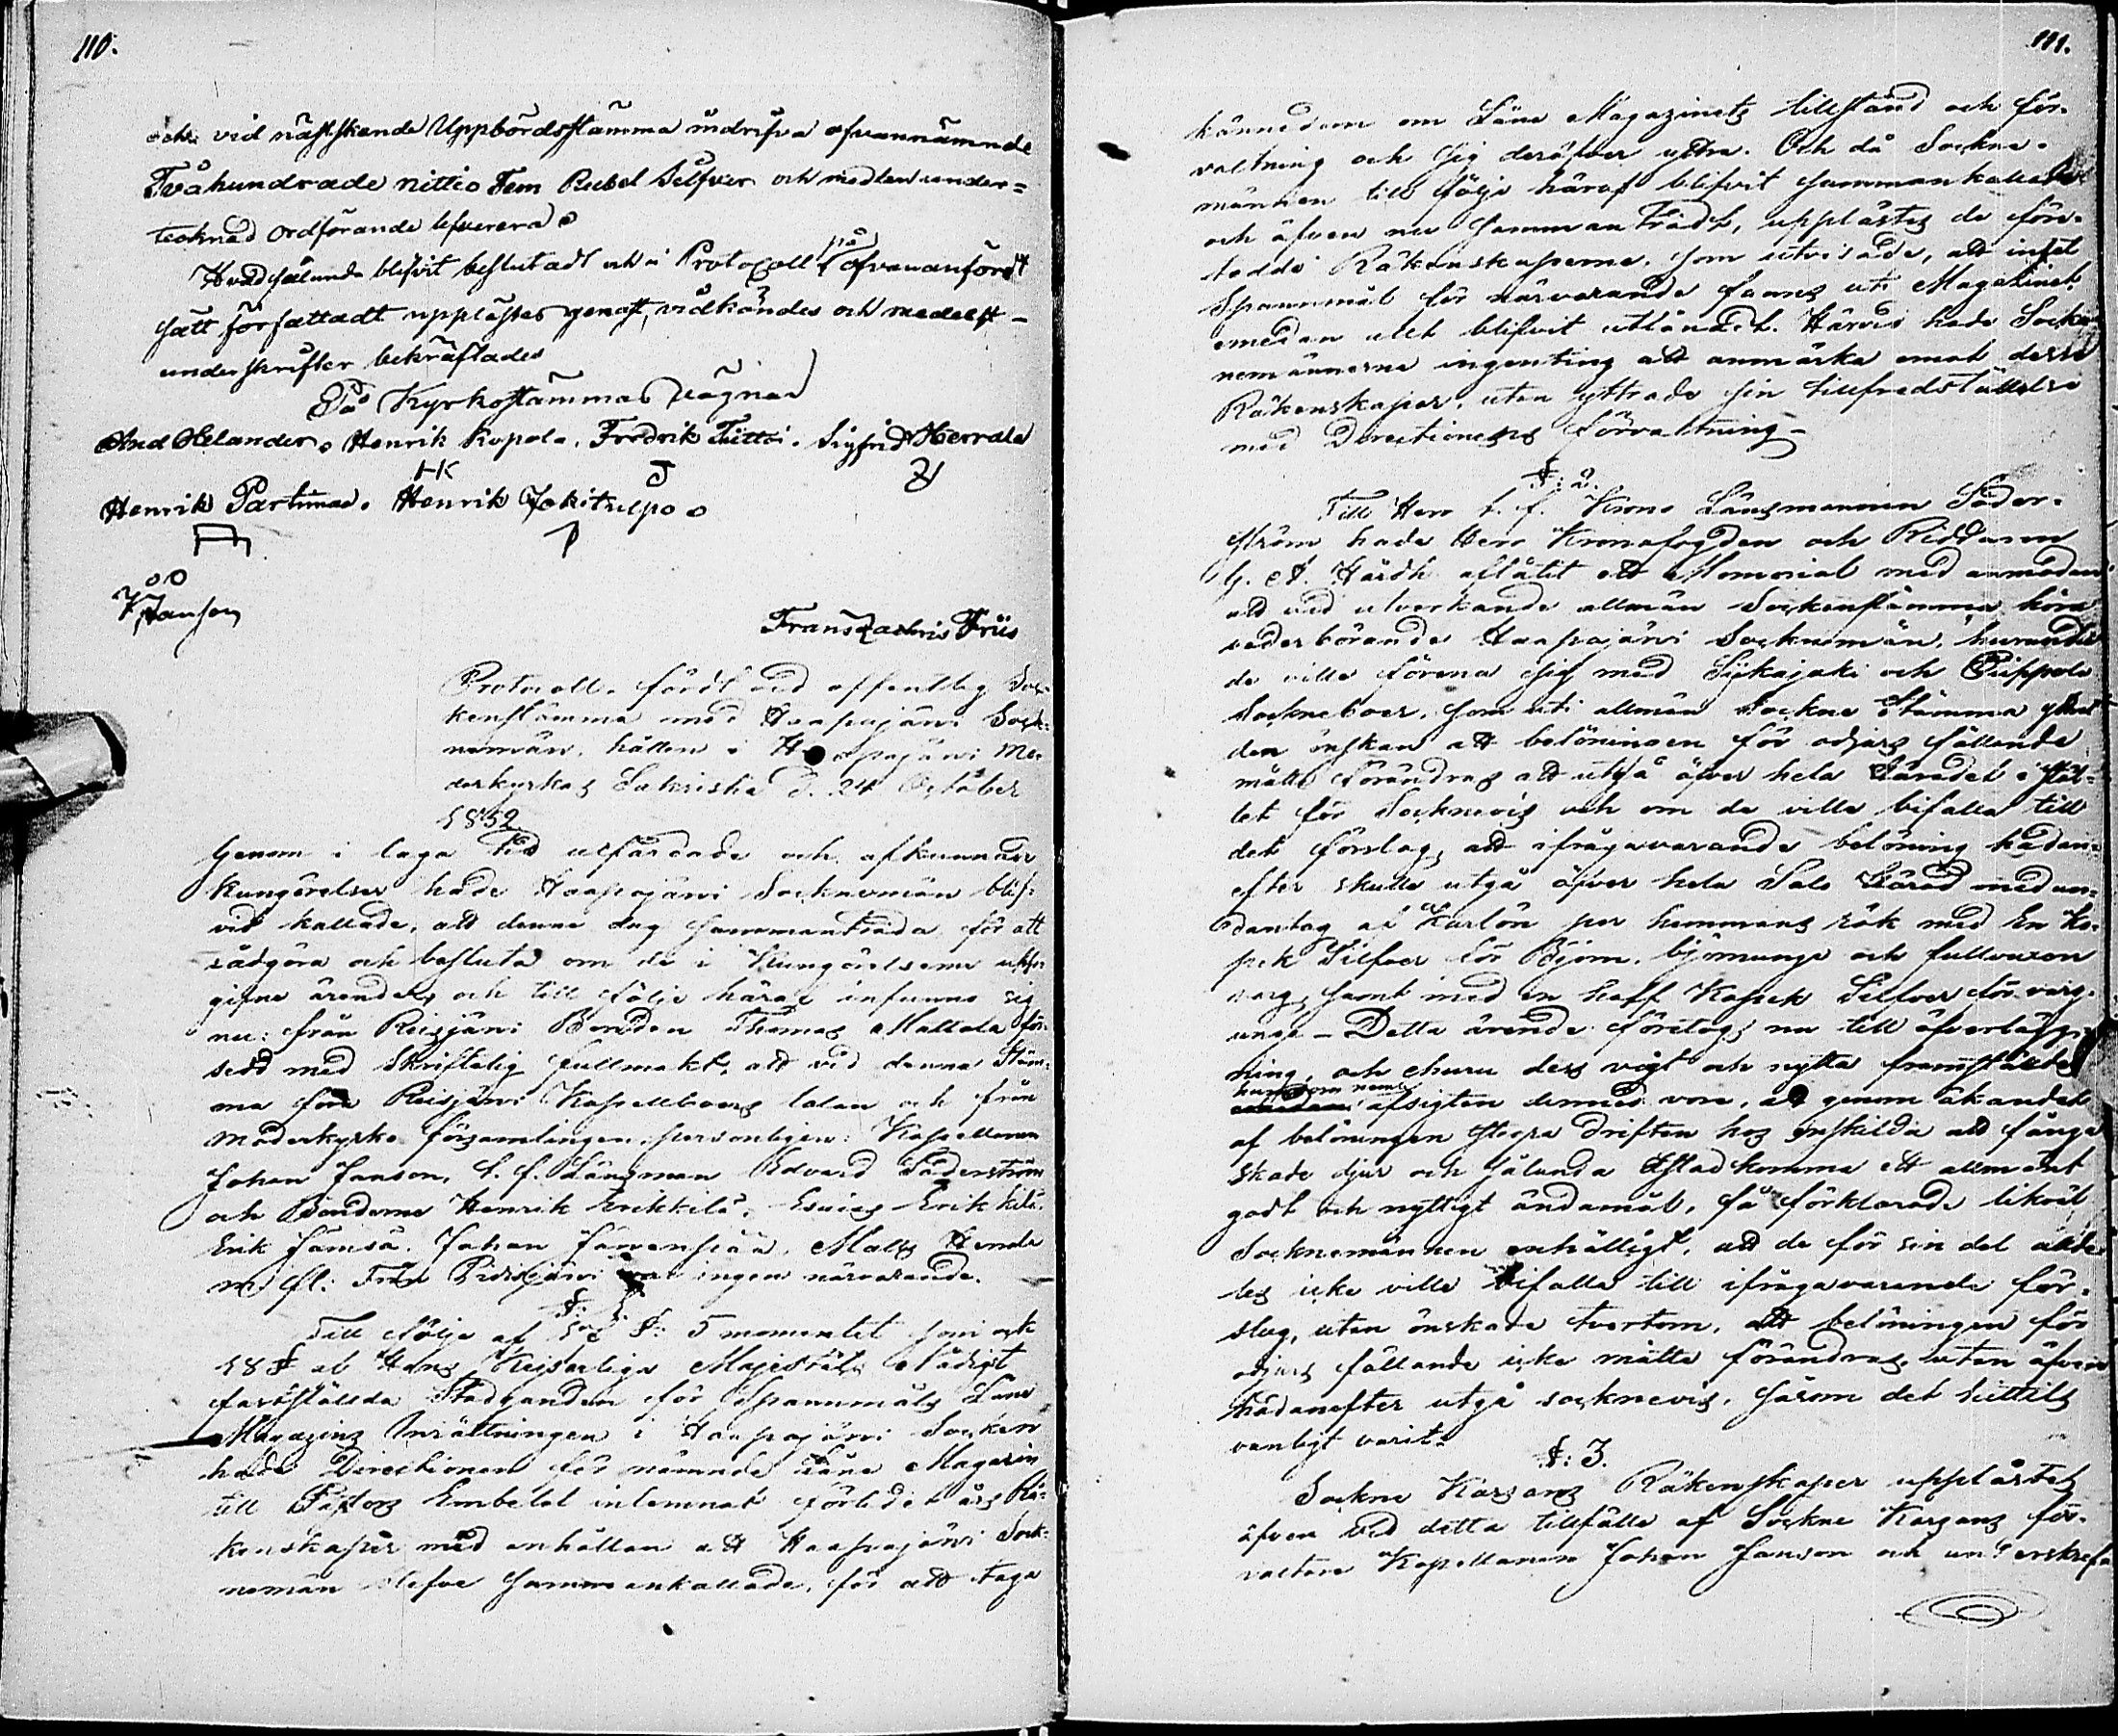 110.
och vid nästskeende Uppbördsstämma indrifva ofvannämnde
Tvåhundrade nittio Fem Rubel Silfver och medlen under=
tecknad Ordförande lefverera.
Hvad sålunda blifvit beslutadt och i Protocoll på ofvananfördt
sätt författadt upplästes genast, vidkändes och medelst
underskrifter bekräftades
På Kyrkostämmas vägnar
And Helander. Henrik Kopola. Fredrik Tuttoi. Sigfrid Herrala
HK
Henrik Partima. Henrik Jokitulpo.
Janson
Frans Zachris Friis
Protocoll, fördt vid offentlig Soc-
kenstämma med Haapajärvi Sock-
nemän, hållen i Haapajärvi Mo-
derkyrkas Sakristia d. 24 October
1852
Genom i laga tid utfärdade och afkunnade
kungörelser hade Haapajärvi Socknemän blif-
vit kallade, att denne dag sammanträda för att
rådgöra och besluta om de i Kungörelserne upp-
gifne ärender, och till följe häraf infunno sig
nu: från Reisjärvi Bonden Thomas Mattala för-
sedd med skriftelig fullmakt, att vid denna Stäm-
ma föra Reisjärvi Kapellboers talan och från
Moderkyrko församlingen, personligen: Kapellanen
Johan Janson, t. f. Länsman Edvard Söderström
och Bönderne Henrik Erikkilä, Esaias Erikkilä,
Erik Jämsä, Johan Järvenpää, Matts
m: fl: Från Pidisjärvi var ingen närvarande.
§: 1.
Till följe af 5 momentet som ock
18 § af Hans Kejserliga Majestäts Nådigst
fastställda Stadganden för Spannmåls Låne
Magazins Inrättningen i Haapajärvi Socken
hade Directionen för nämnde Låne Magazin
till Pastors Embetet inlemnat förledet års Rä-
kenskaper med anhållan att Haapajärvi Sock-
nemän blefve sammankallade, för att taga
111.
kännedom om Låne Magazinets tillstånd och för-
valtning och sig deröfver yttra. Och då Sockne-
männen till följe häraf blifvit sammankallade
och äfven nu sammanträdt, upplästes de före-
tedde Räkenskaperne, som utvisade, att intet
Spannmål för närvarande fanns uti Magazinet,
emedan allt blifvit utlånadt. Härvid hade Sock-
nemännerne ingenting att anmärka emot dessa
Räkenskaper, utan yttrade sin tillfredsställelse
med Directionens förvaltning
§: 2.
Till Herr t. f. Krono Länsmannen Söder-
ström hade Herr Kronofogden och Riddaren
G. A. Hårdh aflåtit ett Memorial med anmodan
att vid utverkande allmän Sockenstämma höra
vederbörande Haapajärvi Socknemän, huruvida
de ville förena sig med Siikajoki och Piippola
Sockneboer, som uti allmän Sockne Stämma
den önskan att belöningen för odjurs fällande
måtte förändras att utgå öfver hela Häradet i stäl-
let för Socknevis och om de ville bifalla till
det förslag, att ifrågavarande belöning hädan-
efter skulle utgå öfver hela Salo Härad med un-
dantag af Karlön per hemmans rök med En Ko-
pek Silfver för Björn, björnunge och fullvuxen
varg, samt med en half Kopek Silfver för varg-
unge – Detta ärende företogs nu till öfverlägg-
ning, och ehuru dess vigt och nytta framställdes
hursom neml. afsigten dermed vore, att genom ökandet
af belöningen stegra driften hos enskilda att fånga
skade djur och sålunda åstadkomma ett allmänt
godt och nyttigt ändamål, så förklarade likväl
Socknemännen enhälligt, att de för sin del allde-
les icke ville bifalla till ifrågavarande för-
slag, utan önskade tvertom, att belöningen för
odjurs fällande icke måtte förändras, utan äfven
hädanefter utgå socknevis, såsom det hittills
vanligt varit.
§: 3.
Sockne Kassans Räkenskaper upplästes
äfven vid detta tillfälle af Sockne Kassans för-
valtare Kapellanen Johan Janson och underskrefs